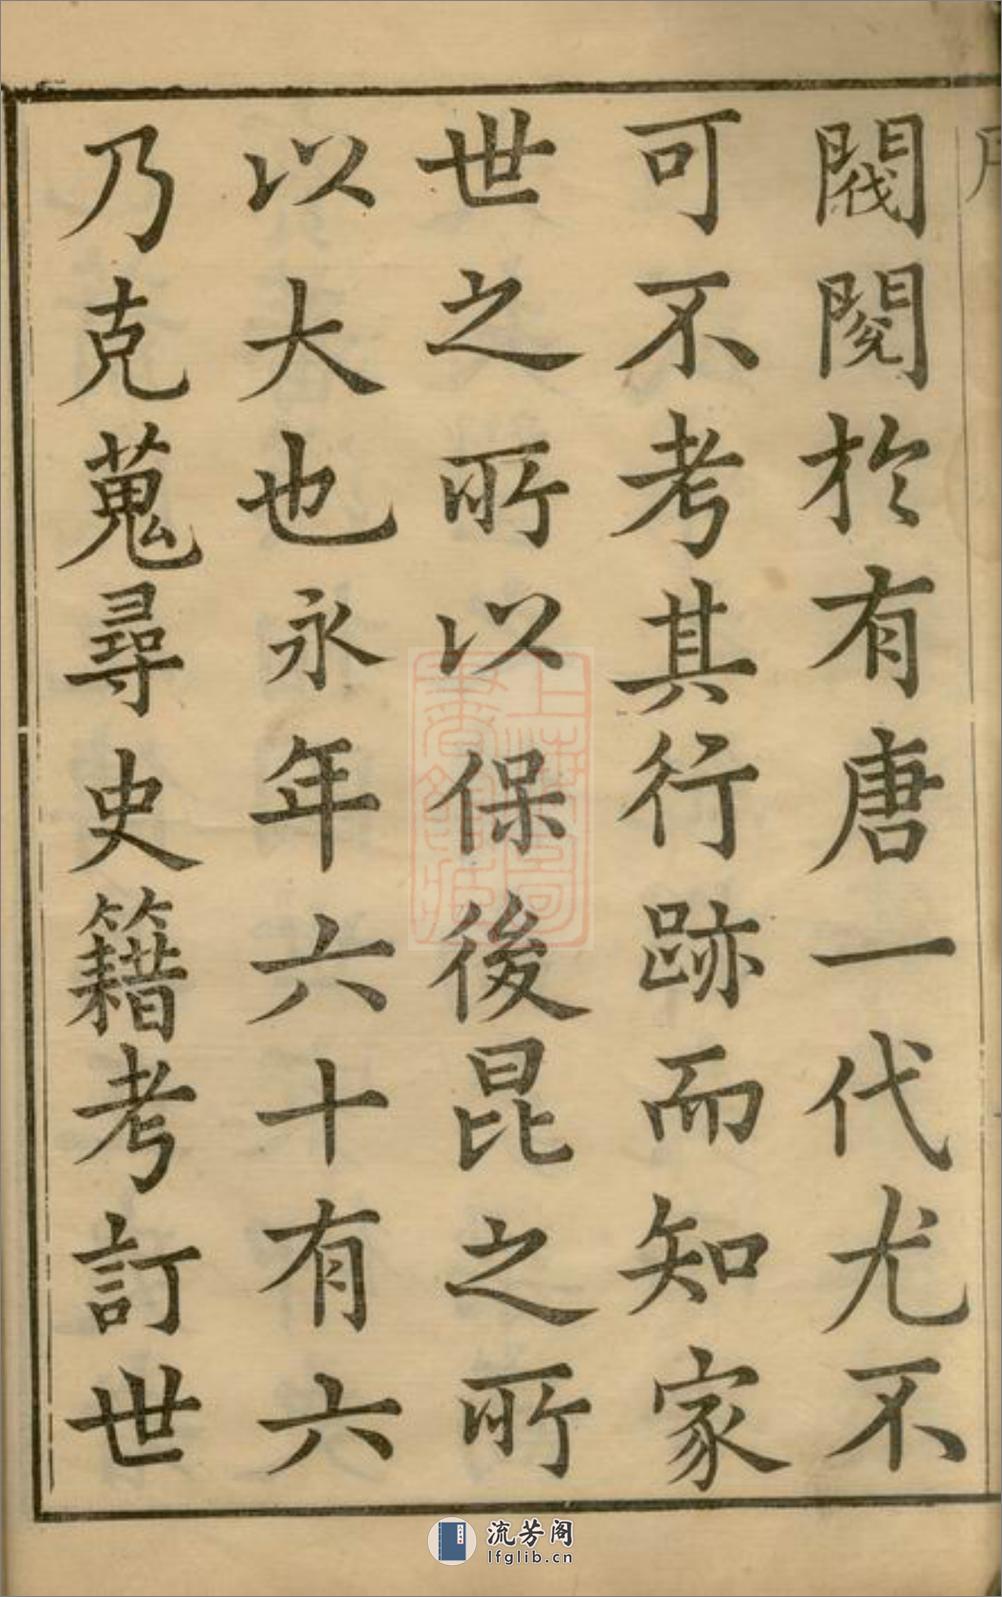 閥閱於有唐一代尤不
可不考其行跡而知家
世之所以保後昆之所
以大也永年六十有六
乃克蒐尋史籍考訂世
上海圖書館藏
流芳阁
lfglib.cn